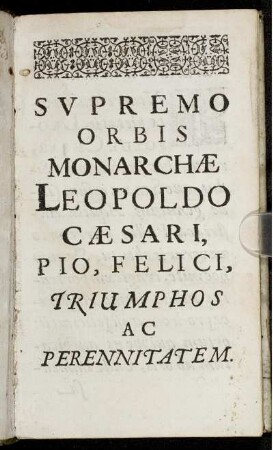 SVPREMO
ORBIS
MONARCHÆ
LEOPOLDO
CÆSARI,
PIO, FELICI,
TRIUMPHOS
AC
PERENNITATEM.